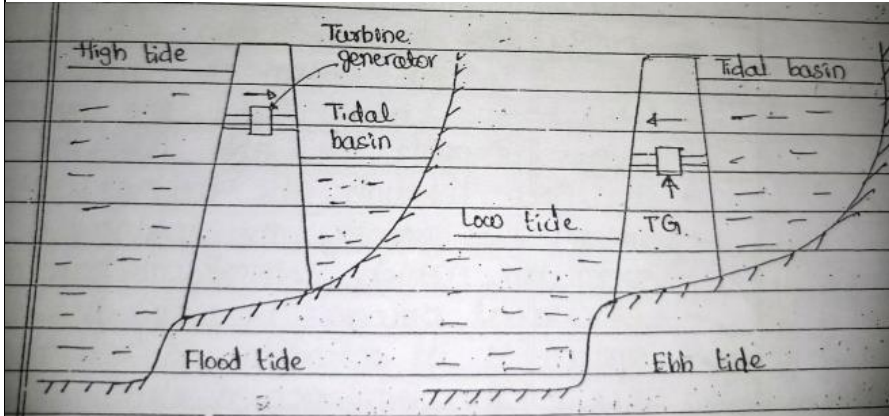 High tide
Turbine
generator
Tidal
basin
Flood tide
Tidal basin
Low tide
TG
Ebb tide